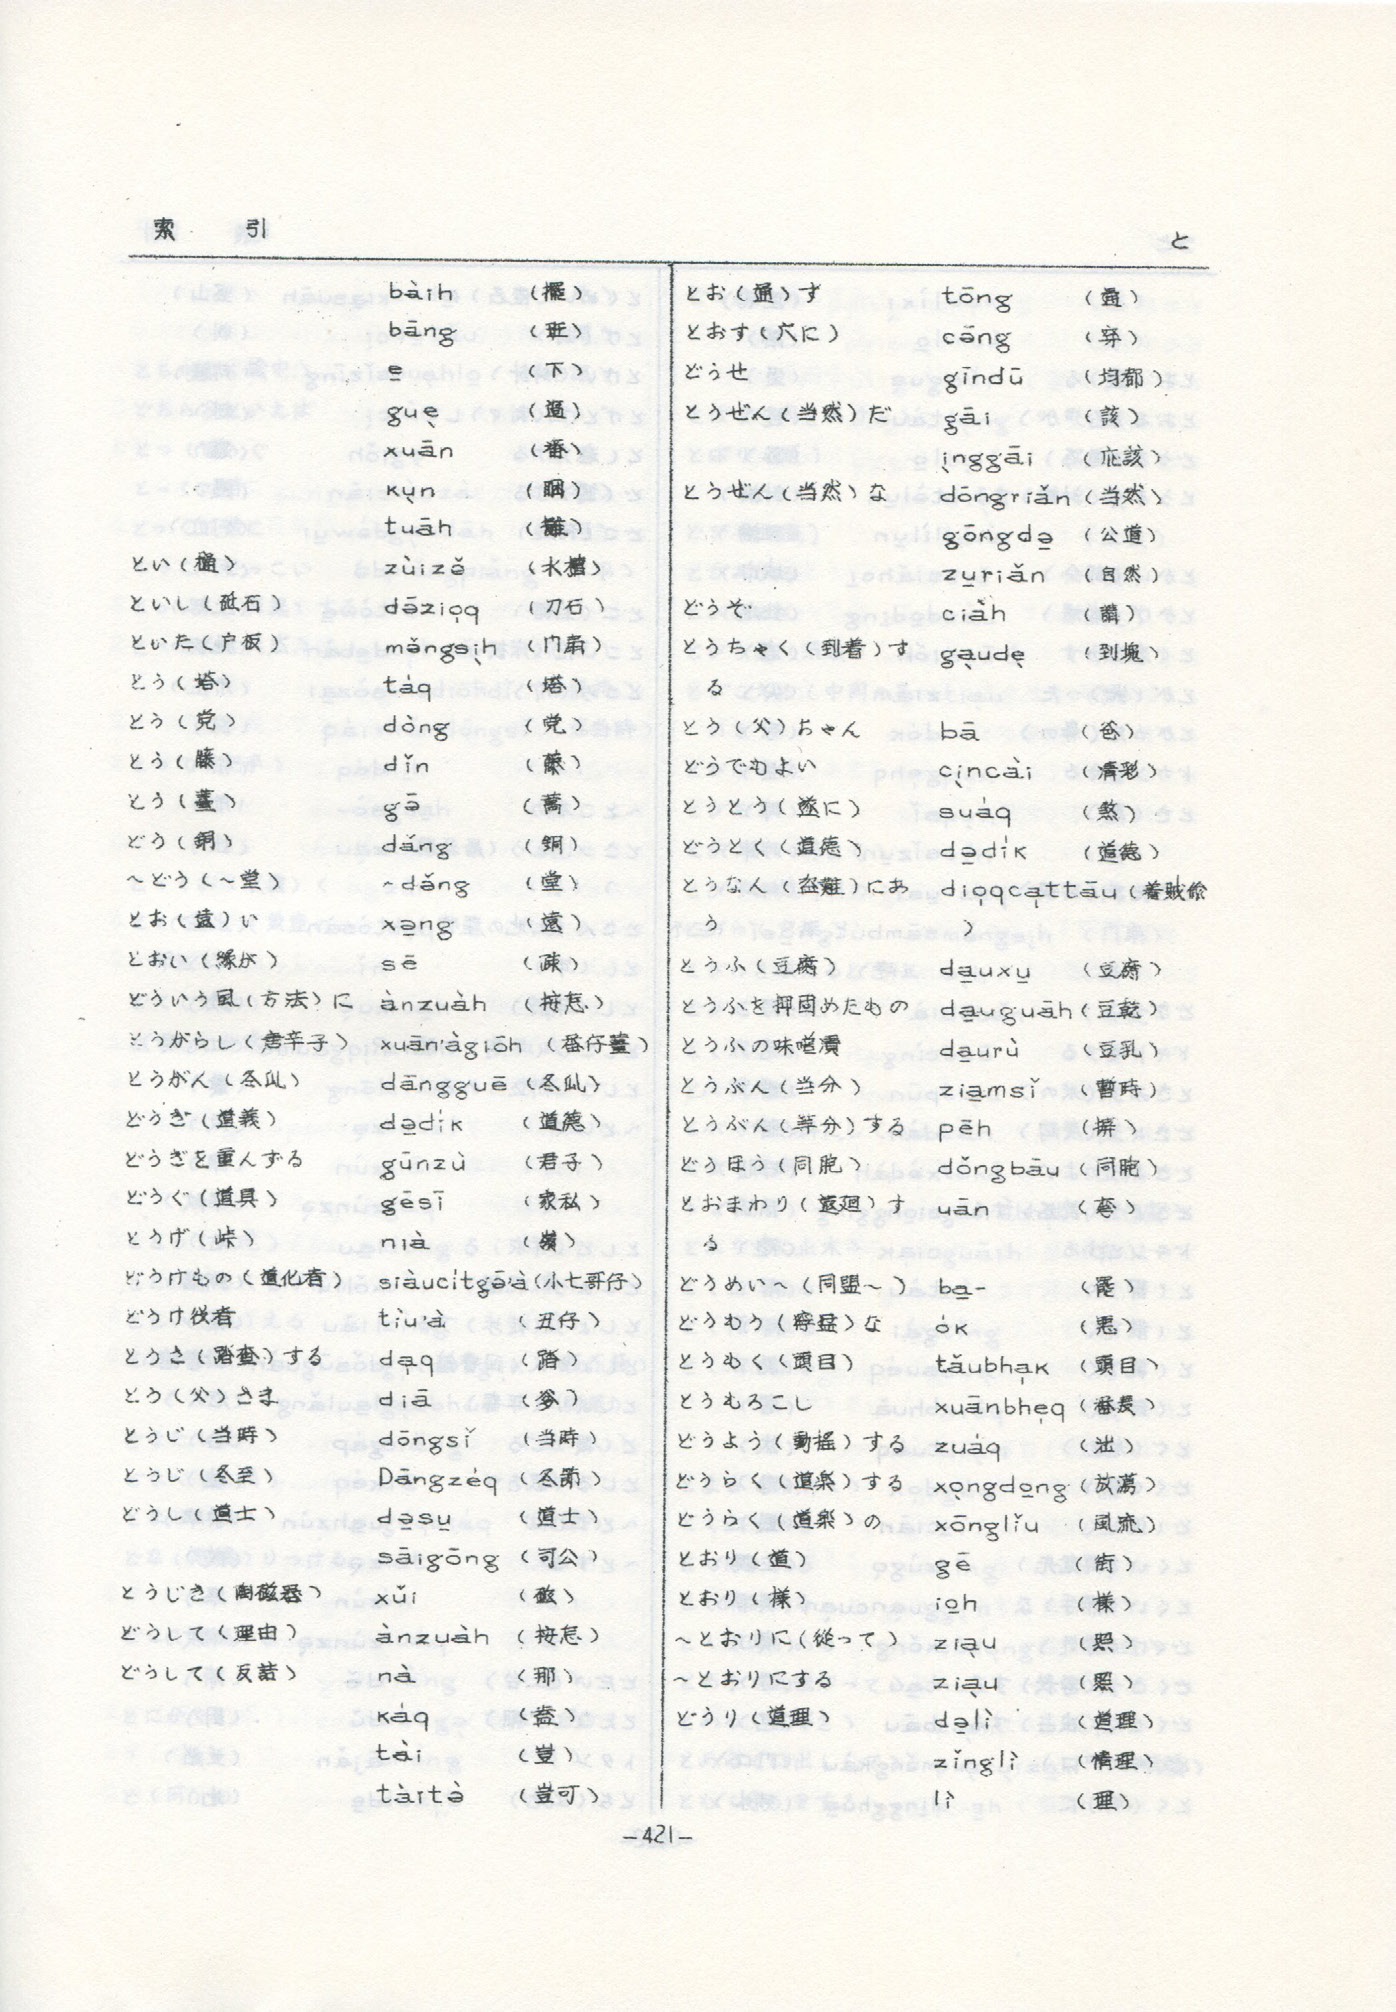 索 引
と
bàih (擺)
bāng (班)
e̱ (下)
gue̩ (過)
xuān (番)
ku̩n (睏)
tuāh (攤)
とい(樋) zùizə̌ (水槽)
といし(砥石) dəzio̩q (刀石)
といた(戸板) mə̌ngsi̩h (门扇)
とう(塔) táq (塔)
とう(党) dòng (党)
とう(籐) dǐn (藤)
とう(薹) gə̄ (蒿)
どう(銅) dǎng (銅)
~どう(~堂) ~də̌ng (堂)
とお(遠)い xə̱ng (遠)
とおい(縁が) sē (疎)
どういう風(方法)に ànzuàh (按怎)
とうがらし(唐辛子) xuān'àgiōh (番仔薑)
とうがん(冬瓜) dāngguē (冬瓜)
どうぎ(道義) də̱dík (道德)
どうぎを重んずる gūnzù (君子)
どうぐ(道具) gēsī (家私)
とうげ(峠) nià (嶺)
どうけもの(道化者) siàucítgə̄'à (小七哥仔)
どうけ役者 tìu'à (丑仔)
とうさ(踏査)する da̩q (踏)
とう(父)さま diā (爹)
とうじ(当時) dōngsǐ (当時)
とうじ(冬至) Dāngzéq (冬節)
どうし(道士) də̱su̱ (道士)
sāigōng (司公)
とうじき(陶磁器) xǔi (磁)
どうして(理由) ànzuàh (按怎)
どうして(反詰) nà (那)
káq (盍)
tài (豈)
tàitə̀ (豈可)
とお(通)ず tōng (通)
とおす(穴に) cə̄ng (穿)
どうせ gīndū (均都)
とうぜん(当然)だ gāi (該)
i̩nggāi (応該)
とうぜん(当然)な dōngriǎn (当然)
gōngdə̱ (公道)
zu̱riǎn (自然)
どうぞ ciàh (請)
とうちゃく(到着)す ga̩ude̩ (到塊)
る
とう(父)ちゃん bā (爸)
どうでもよい ci̩ncài (凊彩)
とうとう(遂に) suáq (煞)
どうとく(道徳) də̱dík (道德)
とうなん(盗難)にあ dio̩qca̩ttāu (着賊偸
う )
とうふ(豆腐) da̱uxu̱ (豆腐)
とうふを押固めたもの da̱uguāh (豆乾)
とうふの味噌漬 da̱urù (豆乳)
とうぶん(当分) zia̱msǐ (暫時)
とうぶん(等分)する pēh (拼)
どうほう(同胞) dǒngbāu (同胞)
とおまわり(遠廻)す uān (弯)
る
どうめい~(同盟~) ba̱- (罷)
どうもう(獰猛)な ók (悪)
とうもく(頭目) tǎubha̩k (頭目)
とうもろこし xuānbhe̩q (番麦)
どうよう(動揺)する zuáq (泏)
どうらく(道楽)する xo̩ngdo̱ng (放蕩)
どうらく(道楽)の xōnglǐu (風流)
とおり(道) gē (街)
とおり(様) io̱h (様)
~とおりに(従って) zia̩u (照)
~とおりにする zia̩u (照)
どうり(道理) də̱lì (道理)
zǐnglì (情理)
lì (理)
-421-